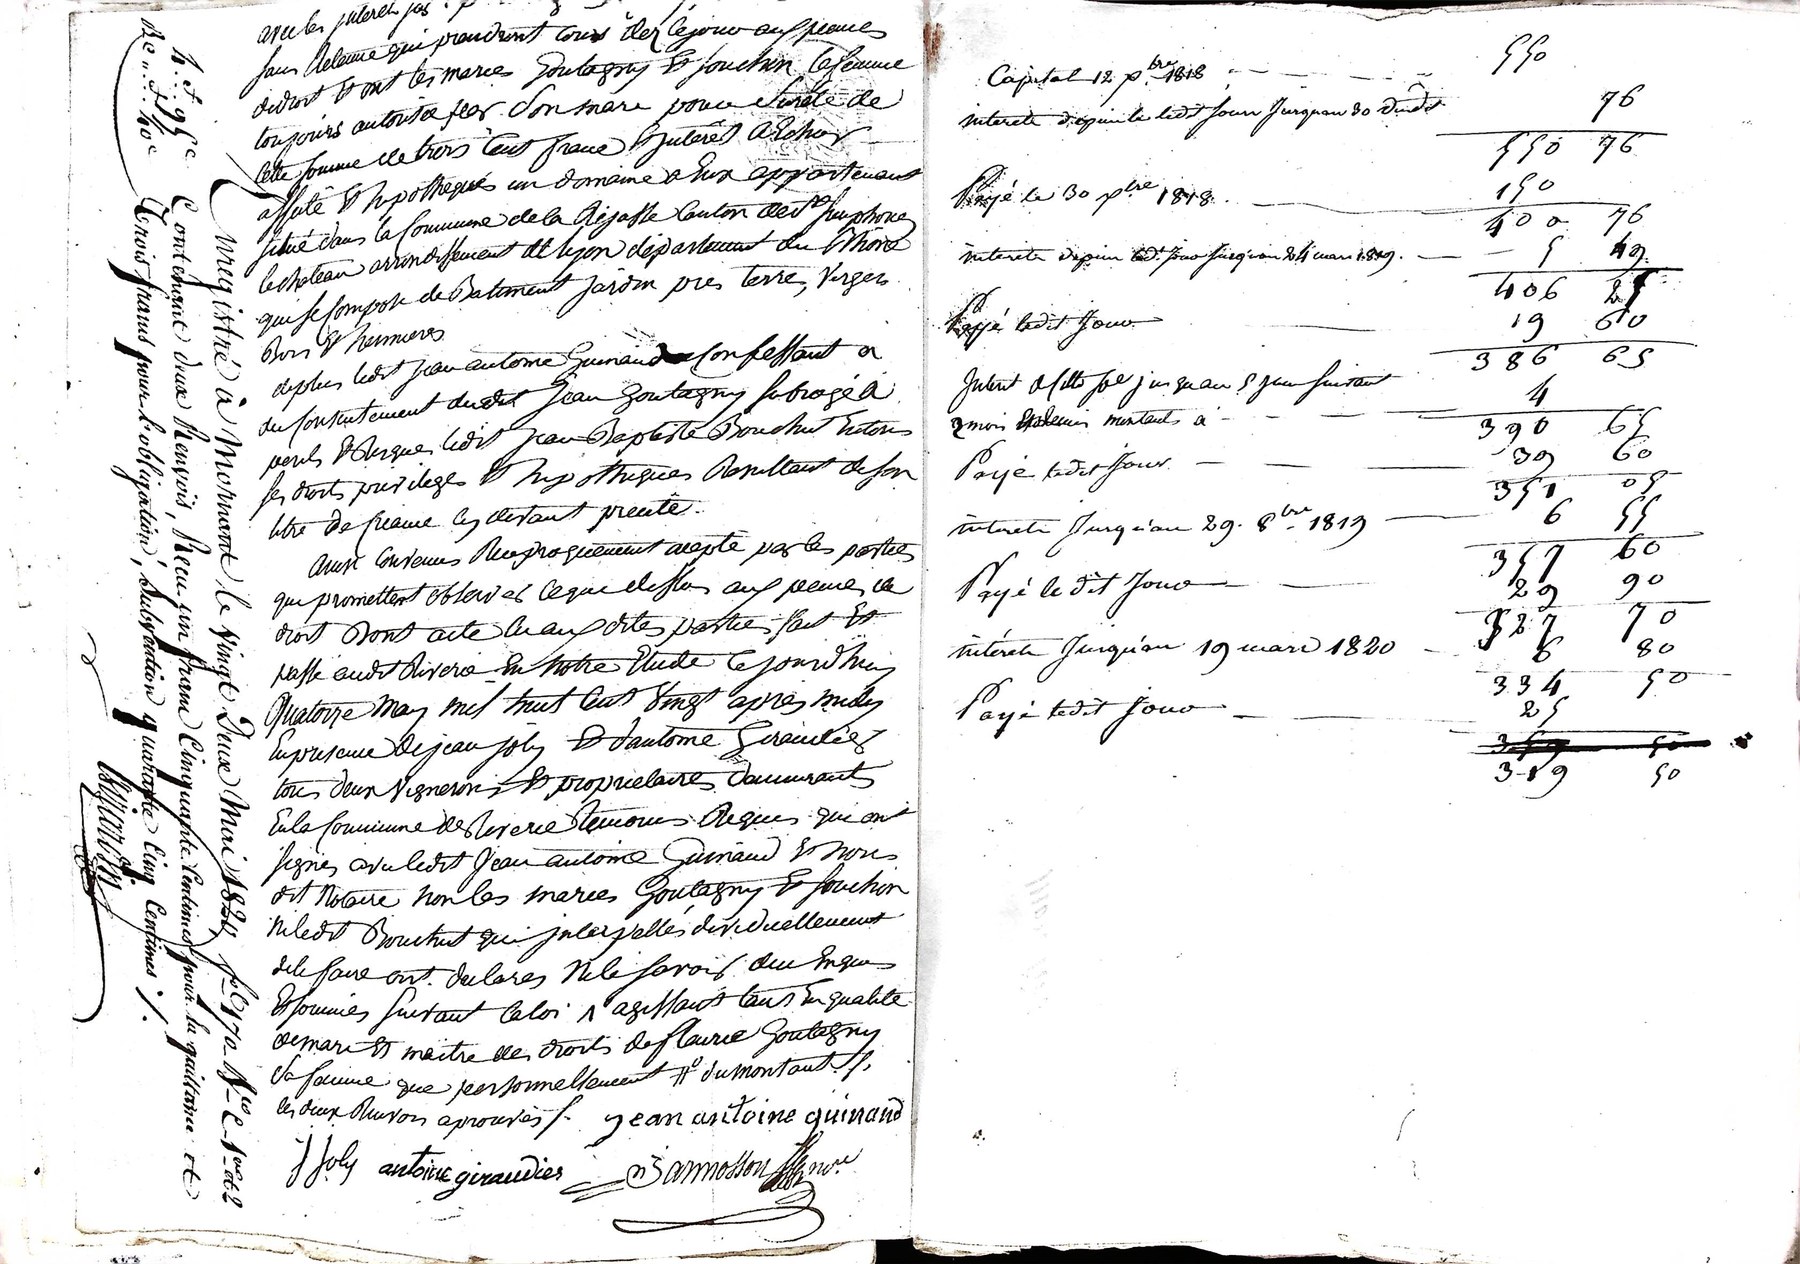 avec les interets jus
sans delaune qui prendront cours dez ce jour aux peines
de droit et ont les maries Goutagny et souchon la femme
toujours autorisé par son mari pour sureté de
cette somme de trois cent franc et interest a Echoir
affecté et hypothequés un domaine a Eux appartenant
situé dans la Commune de la Rajasse Canton de St Simphorien
le chateau arrondissement de lyon département du Rhône
qui se Compose de Batiment Jardin pres terre, Verger
Bois et hermieres
de plus ledit jean antoine Guinand Confessant a
du Consentement dudit Jean Goutagny subrogé a
perils et Risques ledit Jean Baptiste Bouchut En tous
ses droits privileges et hypotheques Resultant de son
titre de Creance cy devant precité.
Ainsi Convenus Reciproquement accepté par les parties
qui promettent observer ce que dessus aux peines de
droit dont acte lu aux dites parties fait et
passé audit Riverie En notre Etude le jourd'huy
Quatorze May mil huit Cent Vingt après midy
En presence de jean joly et d'antoine Giraudier
tous deux Vignerons et proprietaires demeurants
En la Commune de Riverie temoins Requis qui ont
signés avec ledit Jean antoine Guinand et nous
dit Notaire non les maries Goutagny et souchon
ni ledit Bouchut qui jnterpellés dividuellement
de le faire ont declarés ne le savoir due Enquis
et sommés suivant la loi 1º agissant tant En qualité
de mari et maitre des droits de fleurie Goutagny
sa femme que personnellement 2º du montant /.
les deux Renvois aprouvés /. jean antoine guinand
J Joly antoine giraudier Barmosson nre
Enregistré à Mornant le Vingt Deux Mai 1820, fo 170 Vo C. 1 et 2
Contenant deux Renvois, Recu un franc Cinquante Centimes pour la quittance et
Trois francs pour l'obligation, subvention quarante Cinq Centimes /.
4. f 95c
Capital 12 pbre 1818 550
interets depuis le ledit jour Jusquau 30 dudit 76
550 76
Payé le 30 pbre 1818. 150
400 76
interets depuis led. Jour jusquau 24 mars 1819. 5 49
406 25
Payé ledit Jour 19 60
386 65
Interet de cette soe jusquau 5 juin suivant
2 mois et demis montants à 4
390 65
Payé ledit Jour 39 60
351 05
interets Jusquau 29. 8bre 1819 6 55
357 60
Payé le dit Jour 29 90
327 70
intérets Jusquau 19 mars 1820 6 80
334 50
Payé ledit Jour 25
319 50